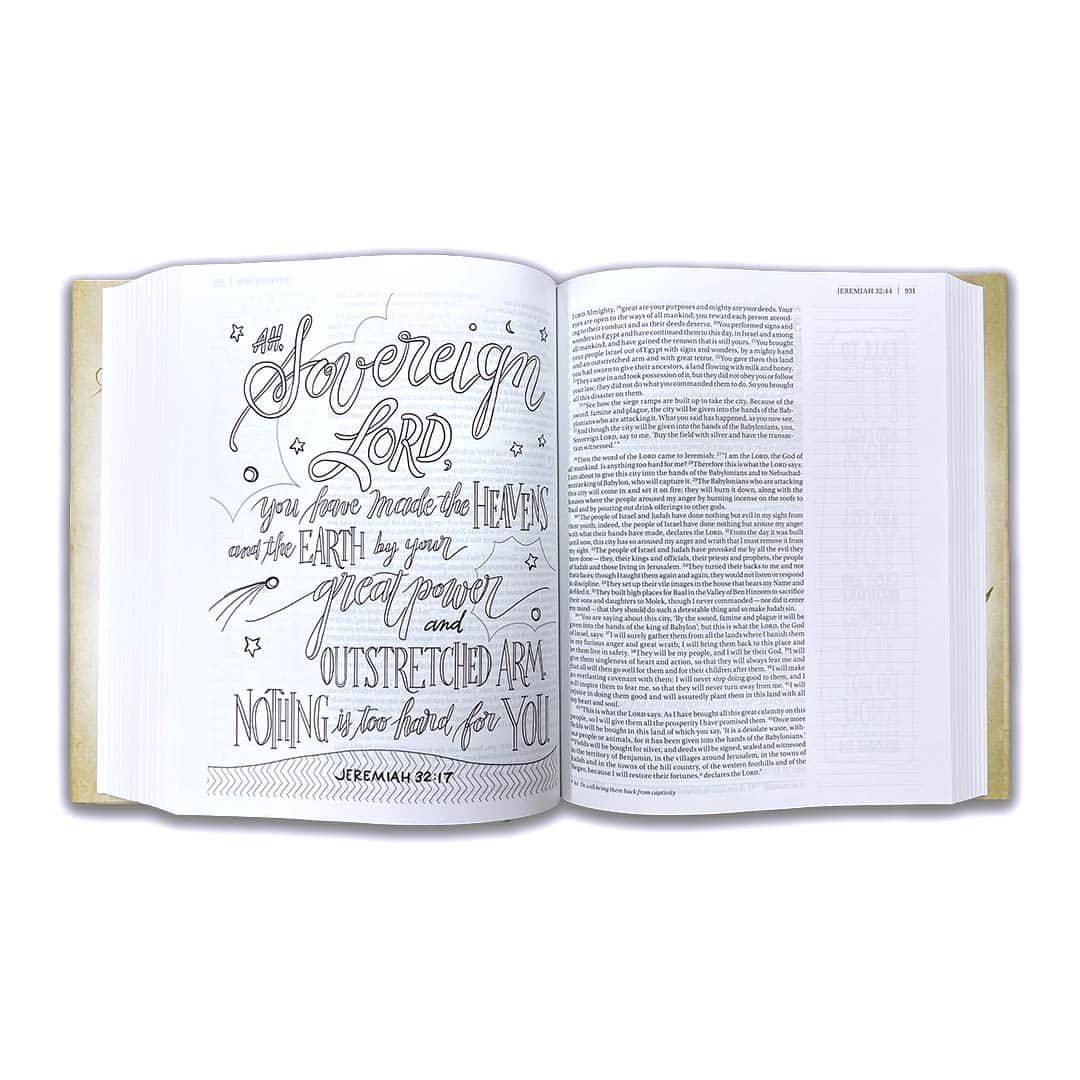 AH,
Sovereign
LORD,
you have made the HEAVENS
and the EARTH by your
great power
and
OUTSTRETCHED ARM.
NOTHING is too hard for YOU
JEREMIAH 32:17
JEREMIAH 32:44 | 931
LORD Almighty, 19great are your purposes and mighty are your deeds. Your
eyes are open to the ways of all mankind; you reward each person accord-
ing to their conduct and as their deeds deserve. 20You performed signs and
wonders in Egypt and have continued them to this day, in Israel and among
all mankind, and have gained the renown that is still yours. 21You brought
your people Israel out of Egypt with signs and wonders, by a mighty hand
and an outstretched arm and with great terror. 22You gave them this land
you had sworn to give their ancestors, a land flowing with milk and honey.
23They came in and took possession of it, but they did not obey you or follow
your law; they did not do what you commanded them to do. So you brought
all this disaster on them.
24"See how the siege ramps are built up to take the city. Because of the
sword, famine and plague, the city will be given into the hands of the Bab-
ylonians who are attacking it. What you said has happened, as you now see.
25And though the city will be given into the hands of the Babylonians, you,
Sovereign LORD, say to me, 'Buy the field with silver and have the transac-
tion witnessed.'"
26Then the word of the LORD came to Jeremiah: 27"I am the LORD, the God of
all mankind. Is anything too hard for me? 28Therefore this is what the LORD says:
I am about to give this city into the hands of the Babylonians and to Nebuchad-
nezzar king of Babylon, who will capture it. 29The Babylonians who are attacking
this city will come in and set it on fire; they will burn it down, along with the
houses where the people aroused my anger by burning incense on the roofs to
Baal and by pouring out drink offerings to other gods.
30"The people of Israel and Judah have done nothing but evil in my sight from
their youth; indeed, the people of Israel have done nothing but arouse my anger
with what their hands have made, declares the LORD. 31From the day it was built
until now, this city has so aroused my anger and wrath that I must remove it from
my sight. 32The people of Israel and Judah have provoked me by all the evil they
have done—they, their kings and officials, their priests and prophets, the people
of Judah and those living in Jerusalem. 33They turned their backs to me and not
their faces; though I taught them again and again, they would not listen or respond
to discipline. 34They set up their vile images in the house that bears my Name and
defiled it. 35They built high places for Baal in the Valley of Ben Hinnom to sacrifice
their sons and daughters to Molek, though I never commanded—nor did it enter
my mind—that they should do such a detestable thing and so make Judah sin.
36"You are saying about this city, 'By the sword, famine and plague it will be
given into the hands of the king of Babylon'; but this is what the LORD, the God
of Israel, says: 37I will surely gather them from all the lands where I banish them
in my furious anger and great wrath; I will bring them back to this place and
let them live in safety. 38They will be my people, and I will be their God. 39I will
give them singleness of heart and action, so that they will always fear me and
that all will then go well for them and for their children after them. 40I will make
an everlasting covenant with them: I will never stop doing good to them, and I
will inspire them to fear me, so that they will never turn away from me. 41I will
rejoice in doing them good and will assuredly plant them in this land with all
my heart and soul.
42"This is what the LORD says: As I have brought all this great calamity on this
people, so I will give them all the prosperity I have promised them. 43Once more
fields will be bought in this land of which you say, 'It is a desolate waste, with-
out people or animals, for it has been given into the hands of the Babylonians.'
44Fields will be bought for silver, and deeds will be signed, sealed and witnessed
in the territory of Benjamin, in the villages around Jerusalem, in the towns of
Judah and in the towns of the hill country, of the western foothills and of the
Negev, because I will restore their fortunes,a declares the LORD."
44 Or will bring them back from captivity